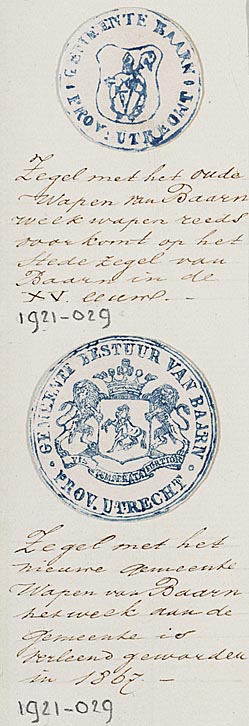 GEMEENTE BAARN
PROV: UTRECHT
Zegel met het oude
Wapen van Baarn
welk wapen reeds
voorkomt op het
Stede zegel van
Baarn in de
XV. eeuw. —
1921-029
GEMEENTE BESTUUR VAN BAARN
PROV. UTRECHT
Zegel met het
nieuwe gemeente
Wapen van Baarn
hetwelk aan de
gemeente is
verleend geworden
in 1867 —
1921-029